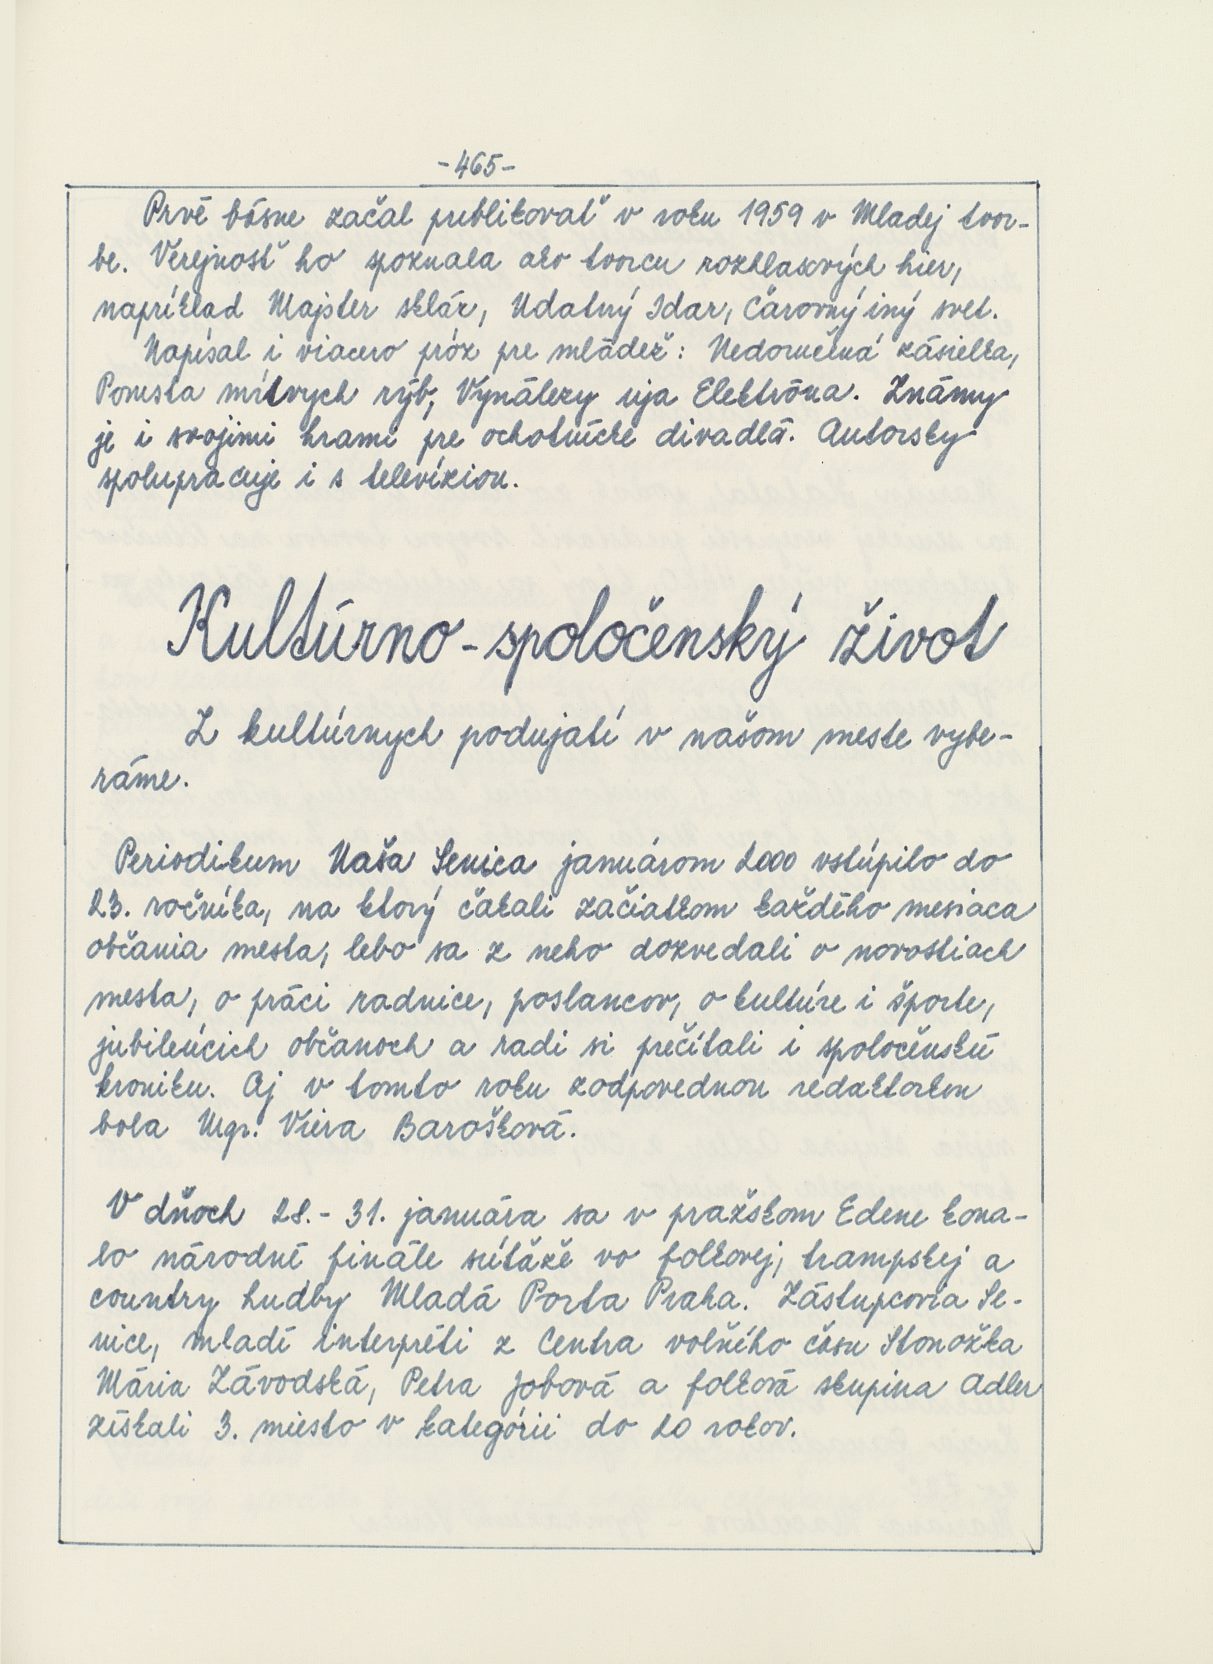 -465-
Prvé básne začal publikovať v roku 1959 v Mladej tvor-
be. Verejnosť ho spoznala ako tvorcu rozhlasových hier,
napríklad Majster sklár, Udatný Idar, Čarovný iný svet.
Napísal i viacero próz pre mládež: Nedoručená zásielka,
Pomsta mŕtvych rýb, Vynálezy uja Elektróna. Známy
je i svojimi hrami pre ochotnícke divadlá. Autorsky
spolupracuje i s televíziou.
Kultúrno-spoločenský život
Z kultúrnych podujatí v našom meste vybe-
ráme.
Periodikum Naša Senica januárom 2000 vstúpilo do
23. ročníka, na ktorý čakali začiatkom každého mesiaca
občania mesta, lebo sa z neho dozvedali o novostiach
mesta, o práci radnice, poslancov, o kultúre i športe,
jubileúcich občanoch a radi si prečítali i spoločenskú
kroniku. Aj v tomto roku zodpovednou redaktorkou
bola Mgr. Viera Barošková.
V dňoch 28.- 31. januára sa v pražskom Edene kona-
lo národné finále súťaže vo folkovej, trampskej a
country hudby Mladá Porta Praha. Zástupcovia Se-
nice, mladí interpréti z Centra voľného času Stonožka
Mária Závodská, Petra Jobová a folková skupina Adler
získali 3. miesto v kategórii do 20 rokov.